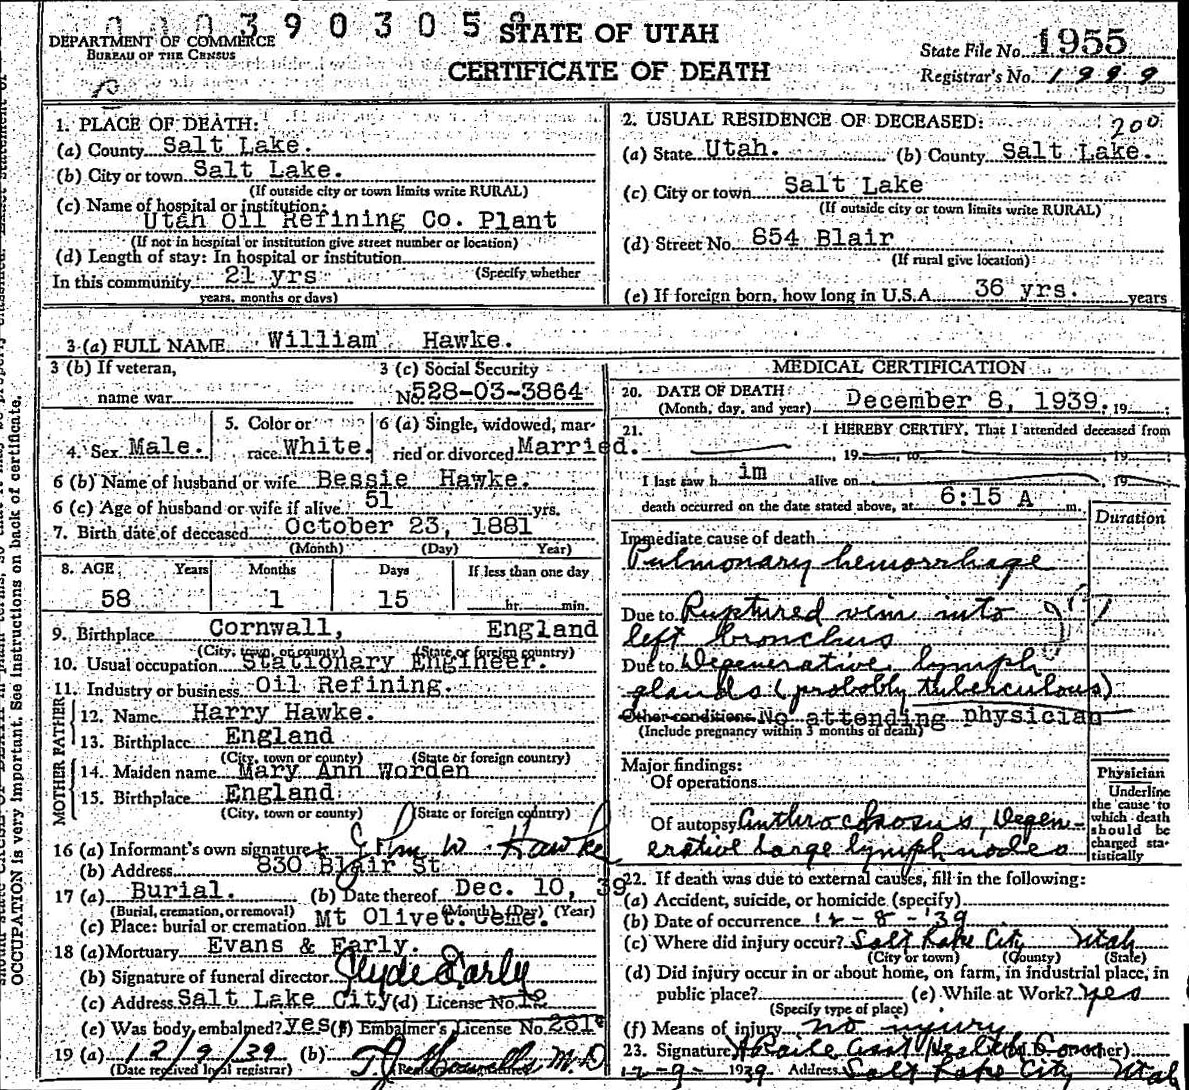 0003903059
STATE OF UTAH
CERTIFICATE OF DEATH
DEPARTMENT OF COMMERCE
BUREAU OF THE CENSUS
State File No. 1955
Registrar's No. 1999
1. PLACE OF DEATH:
(a) County Salt Lake.
(b) City or town Salt Lake.
(If outside city or town limits write RURAL)
(c) Name of hospital or institution:
Utah Oil Refining Co. Plant
(If not in hospital or institution give street number or location)
(d) Length of stay: In hospital or institution
(Specify whether
In this community 21 yrs
years, months or days)
2. USUAL RESIDENCE OF DECEASED: 200
(a) State Utah. (b) County Salt Lake.
(c) City or town Salt Lake
(If outside city or town limits write RURAL)
(d) Street No. 854 Blair
(If rural give location)
(e) If foreign born, how long in U.S.A. 36 yrs. years
3 (a) FULL NAME William Hawke.
3 (b) If veteran,
name war
3 (c) Social Security
No 528-03-3864
4. Sex Male.
5. Color or
race White.
6 (a) Single, widowed, mar-
ried or divorced Married.
6 (b) Name of husband or wife Bessie Hawke.
6 (c) Age of husband or wife if alive 51 yrs.
7. Birth date of deceased October 23, 1881
(Month) (Day) Year)
8. AGE Years Months Days If less than one day
58 1 15 hr. min.
9. Birthplace Cornwall, England
(City, town, or county) (State or foreign country)
10. Usual occupation Stationary Engineer.
11. Industry or business Oil Refining.
FATHER
12. Name Harry Hawke.
13. Birthplace England
(City, town or county) (State or foreign country)
MOTHER
14. Maiden name Mary Ann Worden
15. Birthplace England
(City, town or county) (State or foreign country)
16 (a) Informant's own signature John W Hawke
(b) Address 830 Blair St
17 (a) Burial. (b) Date thereof Dec. 10, 39
(Burial, cremation, or removal) (Month) (Day) (Year)
(c) Place: burial or cremation Mt Olivet. Ceme.
18 (a) Mortuary Evans & Early.
(b) Signature of funeral director Clyde Early
(c) Address Salt Lake City (d) License No. 12
(e) Was body embalmed? yes (f) Embalmer's License No. 281
19 (a) 12/9/39 (b) M.D
(Date received local registrar)
MEDICAL CERTIFICATION
20. DATE OF DEATH
(Month, day, and year) December 8, 1939. 19
21. I HEREBY CERTIFY, That I attended deceased from
, 19 to , 19
I last saw h im alive on , 19
death occurred on the date stated above, at 6:15 A m.
Duration
Immediate cause of death
Pulmonary hemorrhage
Due to Ruptured vein into
left bronchus
Due to Degenerative lymph
glands (probably tuberculous)
Other conditions No attending physician
(Include pregnancy within 3 months of death)
Major findings:
Of operations
Of autopsy Anthrocosous, Degen-
erative large lymph nodes
Physician
Underline
the cause to
which death
should be
charged sta-
tistically
22. If death was due to external causes, fill in the following:
(a) Accident, suicide, or homicide (specify)
(b) Date of occurrence 12-8-'39
(c) Where did injury occur? Salt Lake City Utah
(City or town) (County) (State)
(d) Did injury occur in or about home, on farm, in industrial place, in
public place? (e) While at Work? yes
(Specify type of place)
(f) Means of injury no injury
23. Signature Asst Health
12-9-1939 Address Salt Lake City Utah
OCCUPATION is very important. See instructions on back of certificate.